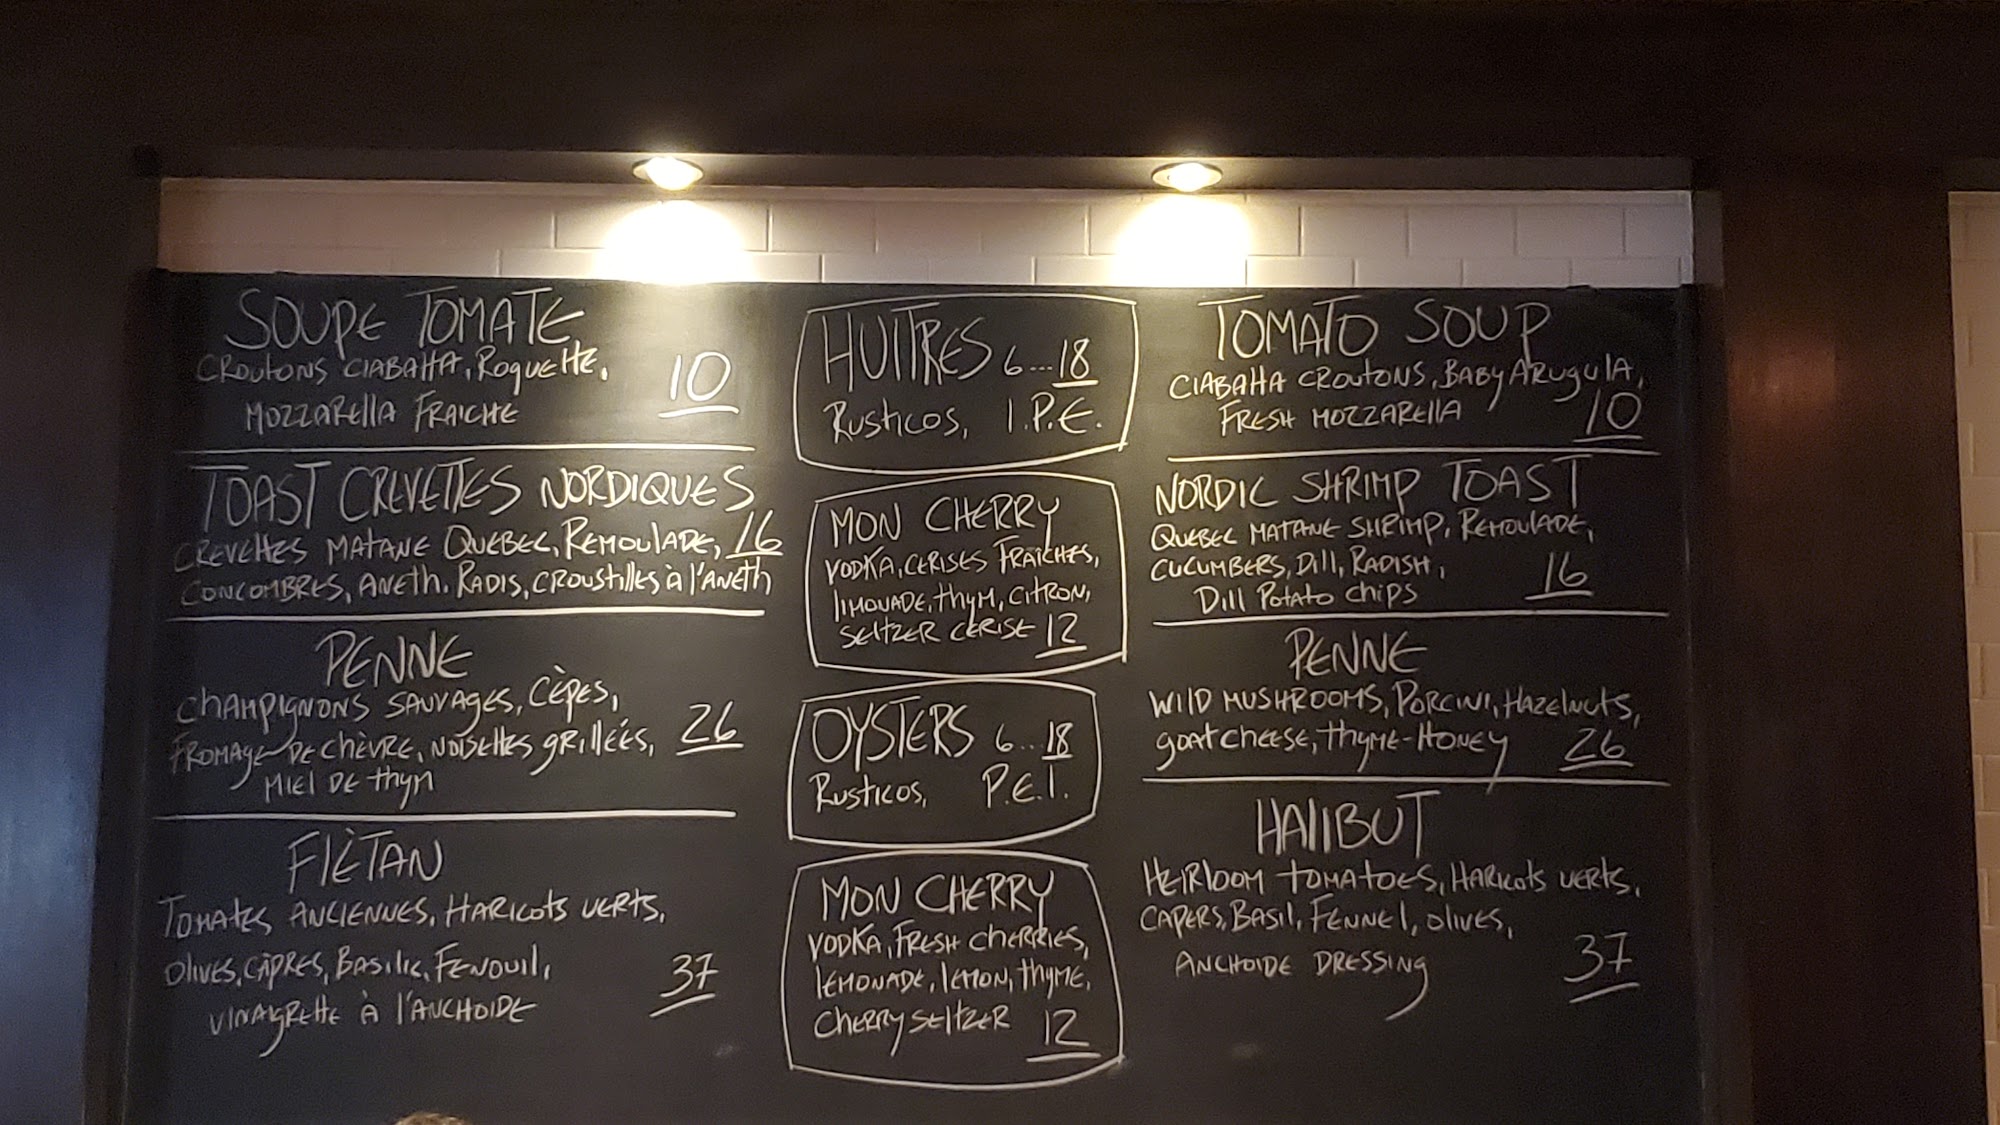 SOUPE TOMATE
CROUTONS CIABATTA, ROQUETTE,
MOZZARELLA FRAICHE
10
TOAST CREVETTES NORDIQUES
CREVETTES MATANE QUEBEC, REMOULADE, 16
CONCOMBRES, ANETH. RADIS, CROUSTILLES À L'ANETH
PENNE
CHAMPIGNONS SAUVAGES, CÈPES,
FROMAGE DE CHÈVRE, NOISETTES GRILLÉES, 26
MIEL DE THYM
FLÈTAN
TOMATES ANCIENNES, HARICOTS VERTS,
OLIVES, CÂPRES, BASILIC, FENOUIL, 37
VINAIGRETTE À L'ANCHOIDE
HUITRES 6...18
RUSTICOS, I.P.E.
MON CHERRY
VODKA, CERISES FRAÎCHES,
LIMONADE, THYM, CITRON,
SELTZER CERISE 12
OYSTERS 6...18
RUSTICOS, P.E.I.
MON CHERRY
VODKA, FRESH CHERRIES,
LEMONADE, LEMON, THYME,
CHERRY SELTZER 12
TOMATO SOUP
CIABATTA CROUTONS, BABY ARUGULA,
FRESH MOZZARELLA 10
NORDIC SHRIMP TOAST
QUEBEC MATANE SHRIMP, REMOULADE,
CUCUMBERS, DILL, RADISH, 16
DILL POTATO CHIPS
PENNE
WILD MUSHROOMS, PORCINI, HAZELNUTS,
GOAT CHEESE, THYME-HONEY 26
HALIBUT
HEIRLOOM TOMATOES, HARICOTS VERTS,
CAPERS, BASIL, FENNEL, OLIVES,
ANCHOIDE DRESSING 37